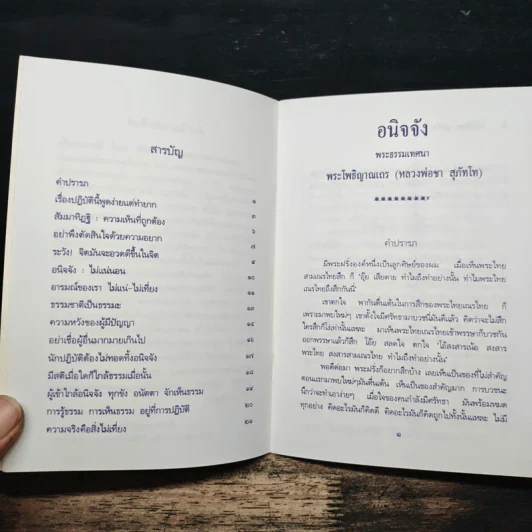 สารบัญ
คำปรารภ
เรื่องปฏิบัตินี้พูดง่ายแต่ทำยาก ๑
สัมมาทิฏฐิ : ความเห็นที่ถูกต้อง ๓
อย่าพึงตัดสินใจด้วยความอยาก ๖
ระวัง! จิตมันจะอวดดีขึ้นในจิต ๗
อนิจจัง : ไม่แน่นอน ๑๐
อารมณ์ของเรา ไม่แน่-ไม่เที่ยง
ธรรมชาติเป็นธรรมะ
ความหวังของผู้มีปัญญา
อย่าเชื่อผู้อื่นมากมายเกินไป
นักปฏิบัติต้องไม่ทอดทิ้งอนิจจัง ๑๗
มีสติเมื่อใดก็ใกล้ธรรมเมื่อนั้น ๑๘
ผู้เข้าใกล้อนิจจัง ทุกขัง อนัตตา จักเห็นธรรม
การรู้ธรรม การเห็นธรรม อยู่ที่การปฏิบัติ ๒๐
ความจริงคือสิ่งไม่เที่ยง ๒๑
อนิจจัง
พระธรรมเทศนา
พระโพธิญาณเถร (หลวงพ่อชา สุภัทโท)
คำปรารภ
มีพระฝรั่งองค์หนึ่งเป็นลูกศิษย์ของผม เมื่อเห็นพระไทย
สามเณรไทยสึก ก็ "อุ๊ย เสียดาย ทำไมถึงทำอย่างนั้น ทำไมพระ
เณรไทยถึงสึกกันนี่"
เขาตกใจ พากันตื่นเต้นในการสึกของพระไทยเณรไทย ก็
เพราะมาพบใหม่ๆ เขาตั้งใจมีศรัทธามาบวชนี่มันดีแล้ว คิดว่าจะไม่สึก
ใครสึกก็โง่เท่านั้นแหละ มาเห็นพระไทยเณรไทยเข้าพรรษาก็บวชกัน
ออกพรรษาแล้วก็สึก โอ๊ย สลดใจ ตกใจ "โอ้สงสารเน้อ สงสาร
พระไทย สงสารสามเณรไทย ทำไมถึงทำอย่างนั้น"
พอดีต่อมา พระฝรั่งก็อยากสึกบ้าง เลยเห็นเป็นของที่ไม่สำคัญ
ตอนแรกมาพบใหม่ๆมันตื่นเต้น เห็นเป็นของสำคัญมาก การบวชนะ
นึกว่าจะทำเอาง่ายๆ เมื่อใจของคนกำลังมีศรัทธา มันพร้อมหมด
ทุกอย่าง คิดอะไรมันก็คิดดี คิดอะไรมันก็คิดถูกไปทั้งนั้นแหละ ไม่มี
๑